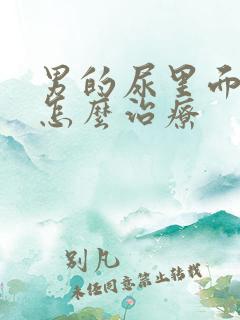 男的尿里而
怎麼治療
别凡
未经同意禁止转载